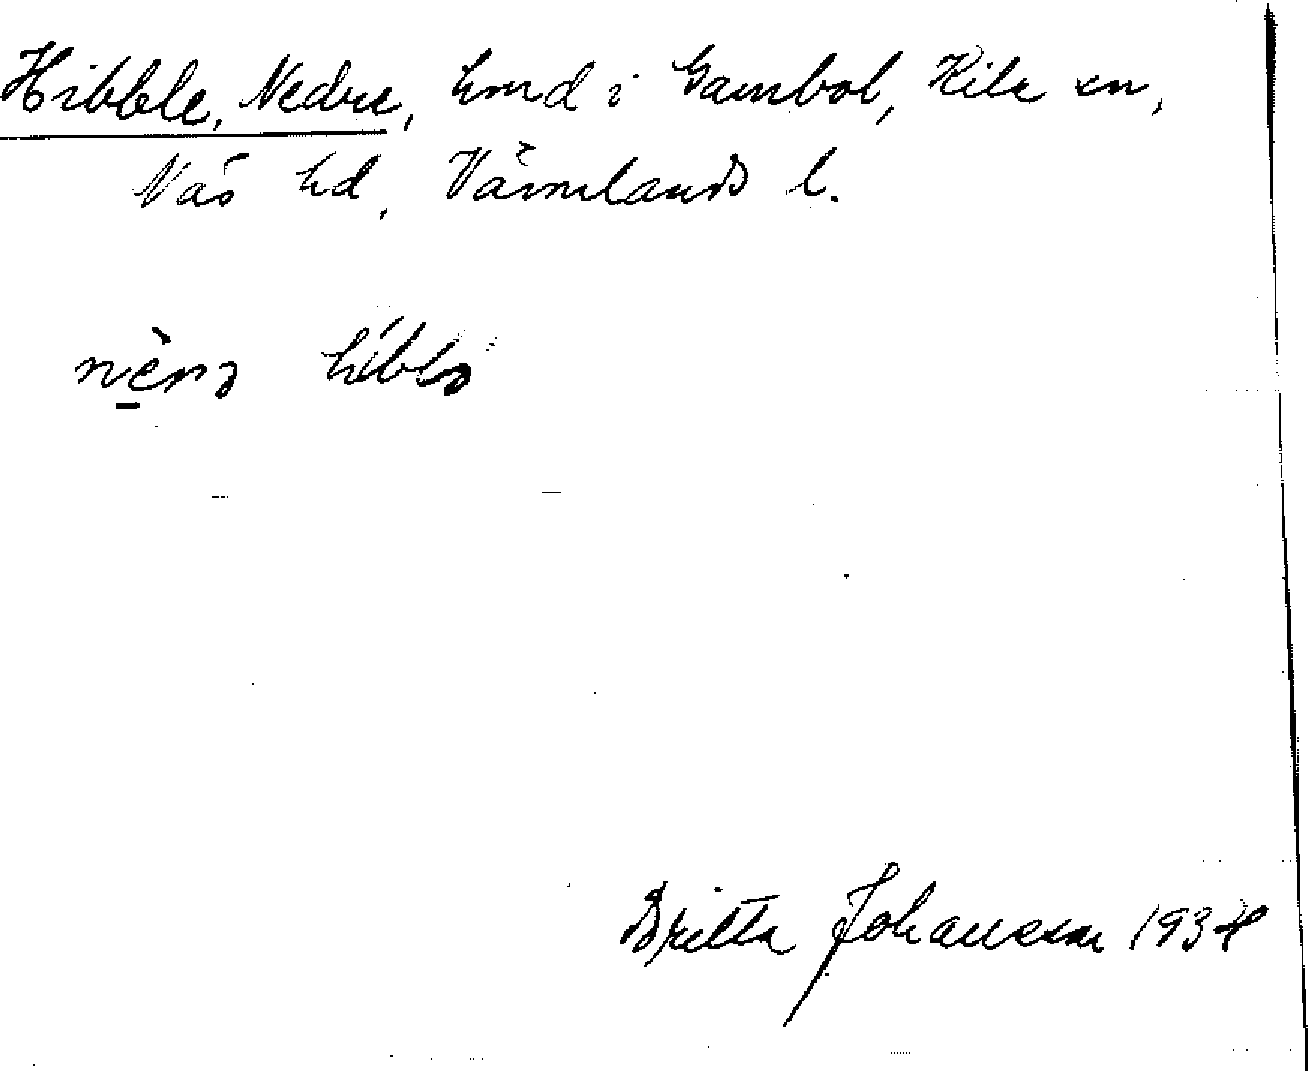 Hibble, Nedre, hmd i Gambol, Kila sn,
Näs hd, Värmlands l.
nèrə hiblə
Britta Johansson 1934